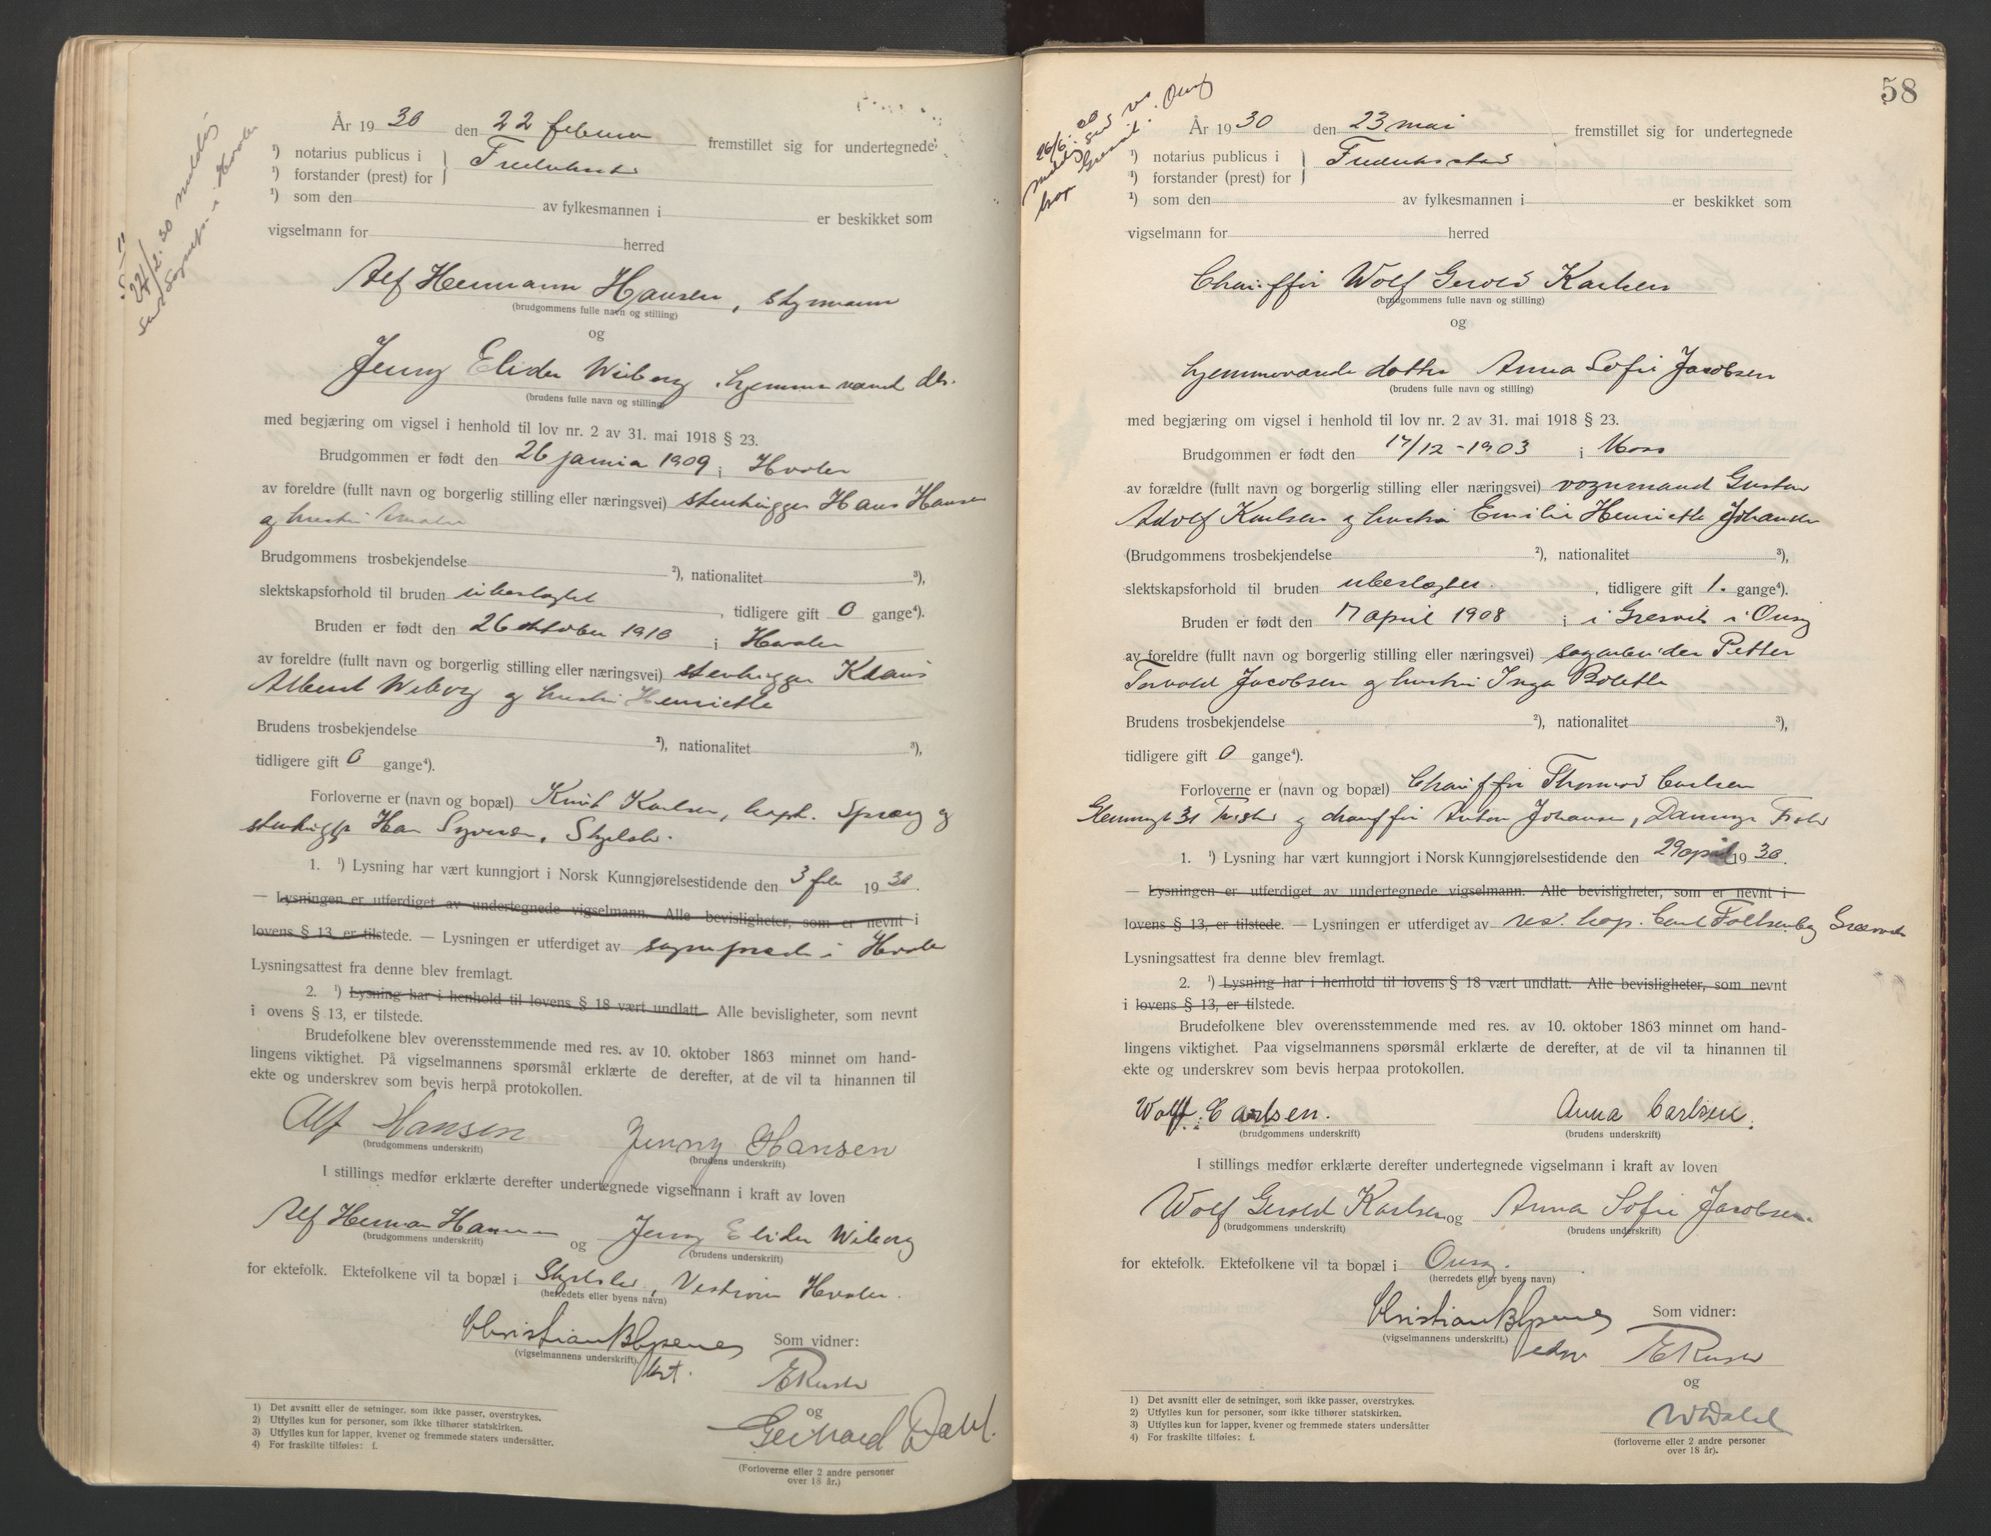 År 1930 den 22 februar fremstillet sig for undertegnede
¹) notarius publicus i
¹) forstander (prest) for
¹) som den av fylkesmannen i er beskikket som
vigselmann for herred
Alf Hermann Hansen, styrmann
(brudgommens fulle navn og stilling)
og
Jenny Elida Wiborg, hjemmevær. dtr.
(brudens fulle navn og stilling)
med begjæring om vigsel i henhold til lov nr. 2 av 31. mai 1918 § 23.
Brudgommen er født den 26 januar 1909 i Hvaler
av foreldre (fullt navn og borgerlig stilling eller næringsvei) stenhugger Hans Hansen
og hustru Amalie
Brudgommens trosbekjendelse ²), nationalitet ³),
slektskapsforhold til bruden ubeslegtet, tidligere gift 0 gange⁴).
Bruden er født den 26 oktober 1910 i Hvaler
av foreldre (fullt navn og borgerlig stilling eller næringsvei) stenhugger Klaus
Albert Wiborg og hustru Henriette
Brudens trosbekjendelse ²), nationalitet ³),
tidligere gift 0 gange⁴).
Forloverne er (navn og bopæl) Knut Karlsen, Spræng og
stenhugg. Syversen,
1. ¹) Lysning har vært kunngjort i Norsk Kunngjørelsestidende den 3 feb 1930.
— Lysningen er utferdiget av undertegnede vigselmann. Alle bevisligheter, som er nevnt i
lovens § 13, er tilstede. — Lysningen er utferdiget av sogneprest i Hvaler
Lysningsattest fra denne blev fremlagt.
2. ¹) Lysning har i henhold til lovens § 18 vært undlatt. Alle bevisligheter, som nevnt
i ovens § 13, er tilstede.
Brudefolkene blev overensstemmende med res. av 10. oktober 1863 minnet om hand-
lingens viktighet. På vigselmannens spørsmål erklærte de derefter, at de vil ta hinannen til
ekte og underskrev som bevis herpå protokollen.
Alf Hansen Jenny Hansen
(brudgommens underskrift) (brudens underskrift)
I stillings medfør erklærte derefter undertegnede vigselmann i kraft av loven
Alf Herman Hansen og Jenny Elida Wiborg
(brudgommens underskrift) (brudens underskrift)
for ektefolk. Ektefolkene vil ta bopæl i Hvaler.
(herredets eller byens navn)
Som vidner:
(vigselmannens underskrift).
og
Gerhard Dahl.
(Forloverne eller 2 andre personer
over 18 år.)
1) Det avsnitt eller de setninger, som ikke passer, overstrykes.
2) Utfylles kun for personer, som ikke tilhører statskirken.
3) Utfylles kun for lapper, kvener og fremmede staters undersåtter.
4) For fraskilte tilføies: f.
58
År 1930 den 23 mai fremstillet sig for undertegnede
¹) notarius publicus i Fredrikstad
¹) forstander (prest) for
¹) som den av fylkesmannen i er beskikket som
vigselmann for herred
Chauffør Wolf Gerold Karlsen
(brudgommens fulle navn og stilling)
og
hjemmeværende datter Anna Sofie Jacobsen
(brudens fulle navn og stilling)
med begjæring om vigsel i henhold til lov nr. 2 av 31. mai 1918 § 23.
Brudgommen er født den 17/12-1903 i Moss
av forældre (fullt navn og borgerlig stilling eller næringsvei) vognmand Gustav
Adolf Karlsen og hustru Emilie Henriette Johansen
(Brudgommens trosbekjendelse ²), nationalitet ³),
slektskapsforhold til bruden ubeslegtet, tidligere gift 1. gange⁴).
Bruden er født den 17 april 1908 i i Gresvik i Onsø
av foreldre (fullt navn og borgerlig stilling eller næringsvei) sagarbeider Petter
Torvald Jacobsen og hustru Inga Bolette
Brudens trosbekjendelse ²), nationalitet ³),
tidligere gift 0 gange⁴).
Forloverne er (navn og bopæl) Chauffør Thorvald Carlsen
31 og chauffør Anton Johansen,
1. ¹) Lysning har vært kunngjort i Norsk Kunngjørelsestidende den 29 april 1930.
— Lysningen er utferdiget av undertegnede vigselmann. Alle bevisligheter, som er nevnt i
lovens § 13, er tilstede. — Lysningen er utferdiget av res. kap. Gresvik
Lysningsattest fra denne blev fremlagt.
2. ¹) Lysning har i henhold til lovens § 18 vært undlatt. Alle bevisligheter, som nevnt
i lovens § 13, er tilstede.
Brudefolkene blev overensstemmende med res. av 10. oktober 1863 minnet om hand-
lingens viktighet. Paa vigselmannens spørsmål erklærte de derefter, at de vil ta hinannen til
ekte og underskrev som bevis herpaa protokollen.
Wolf. Carlsen. Anna Carlsen.
(brudgommens underskrift) (brudens underskrift)
I stillings medfør erklærte derefter undertegnede vigselmann i kraft av loven
Wolf Gerold Karlsen og Anna Sofie Jacobsen.
(brudgommens underskrift) (brudens underskrift)
for ektefolk. Ektefolkene vil ta bopæl i Onsø.
(herredets eller byens navn)
Som vidner:
(vigselmannens underskrift.)
og
W Dahl
(forloverne eller 2 andre personer
over 18 år).
1) Det avsnitt eller de setninger, som ikke passer, overstrykes.
2) Utfylles kun for personer, som ikke tilhører statskirken.
3) Utfylles kun for lapper, kvener og fremmede staters undersåtter
4) For fraskilte tilføies: f.